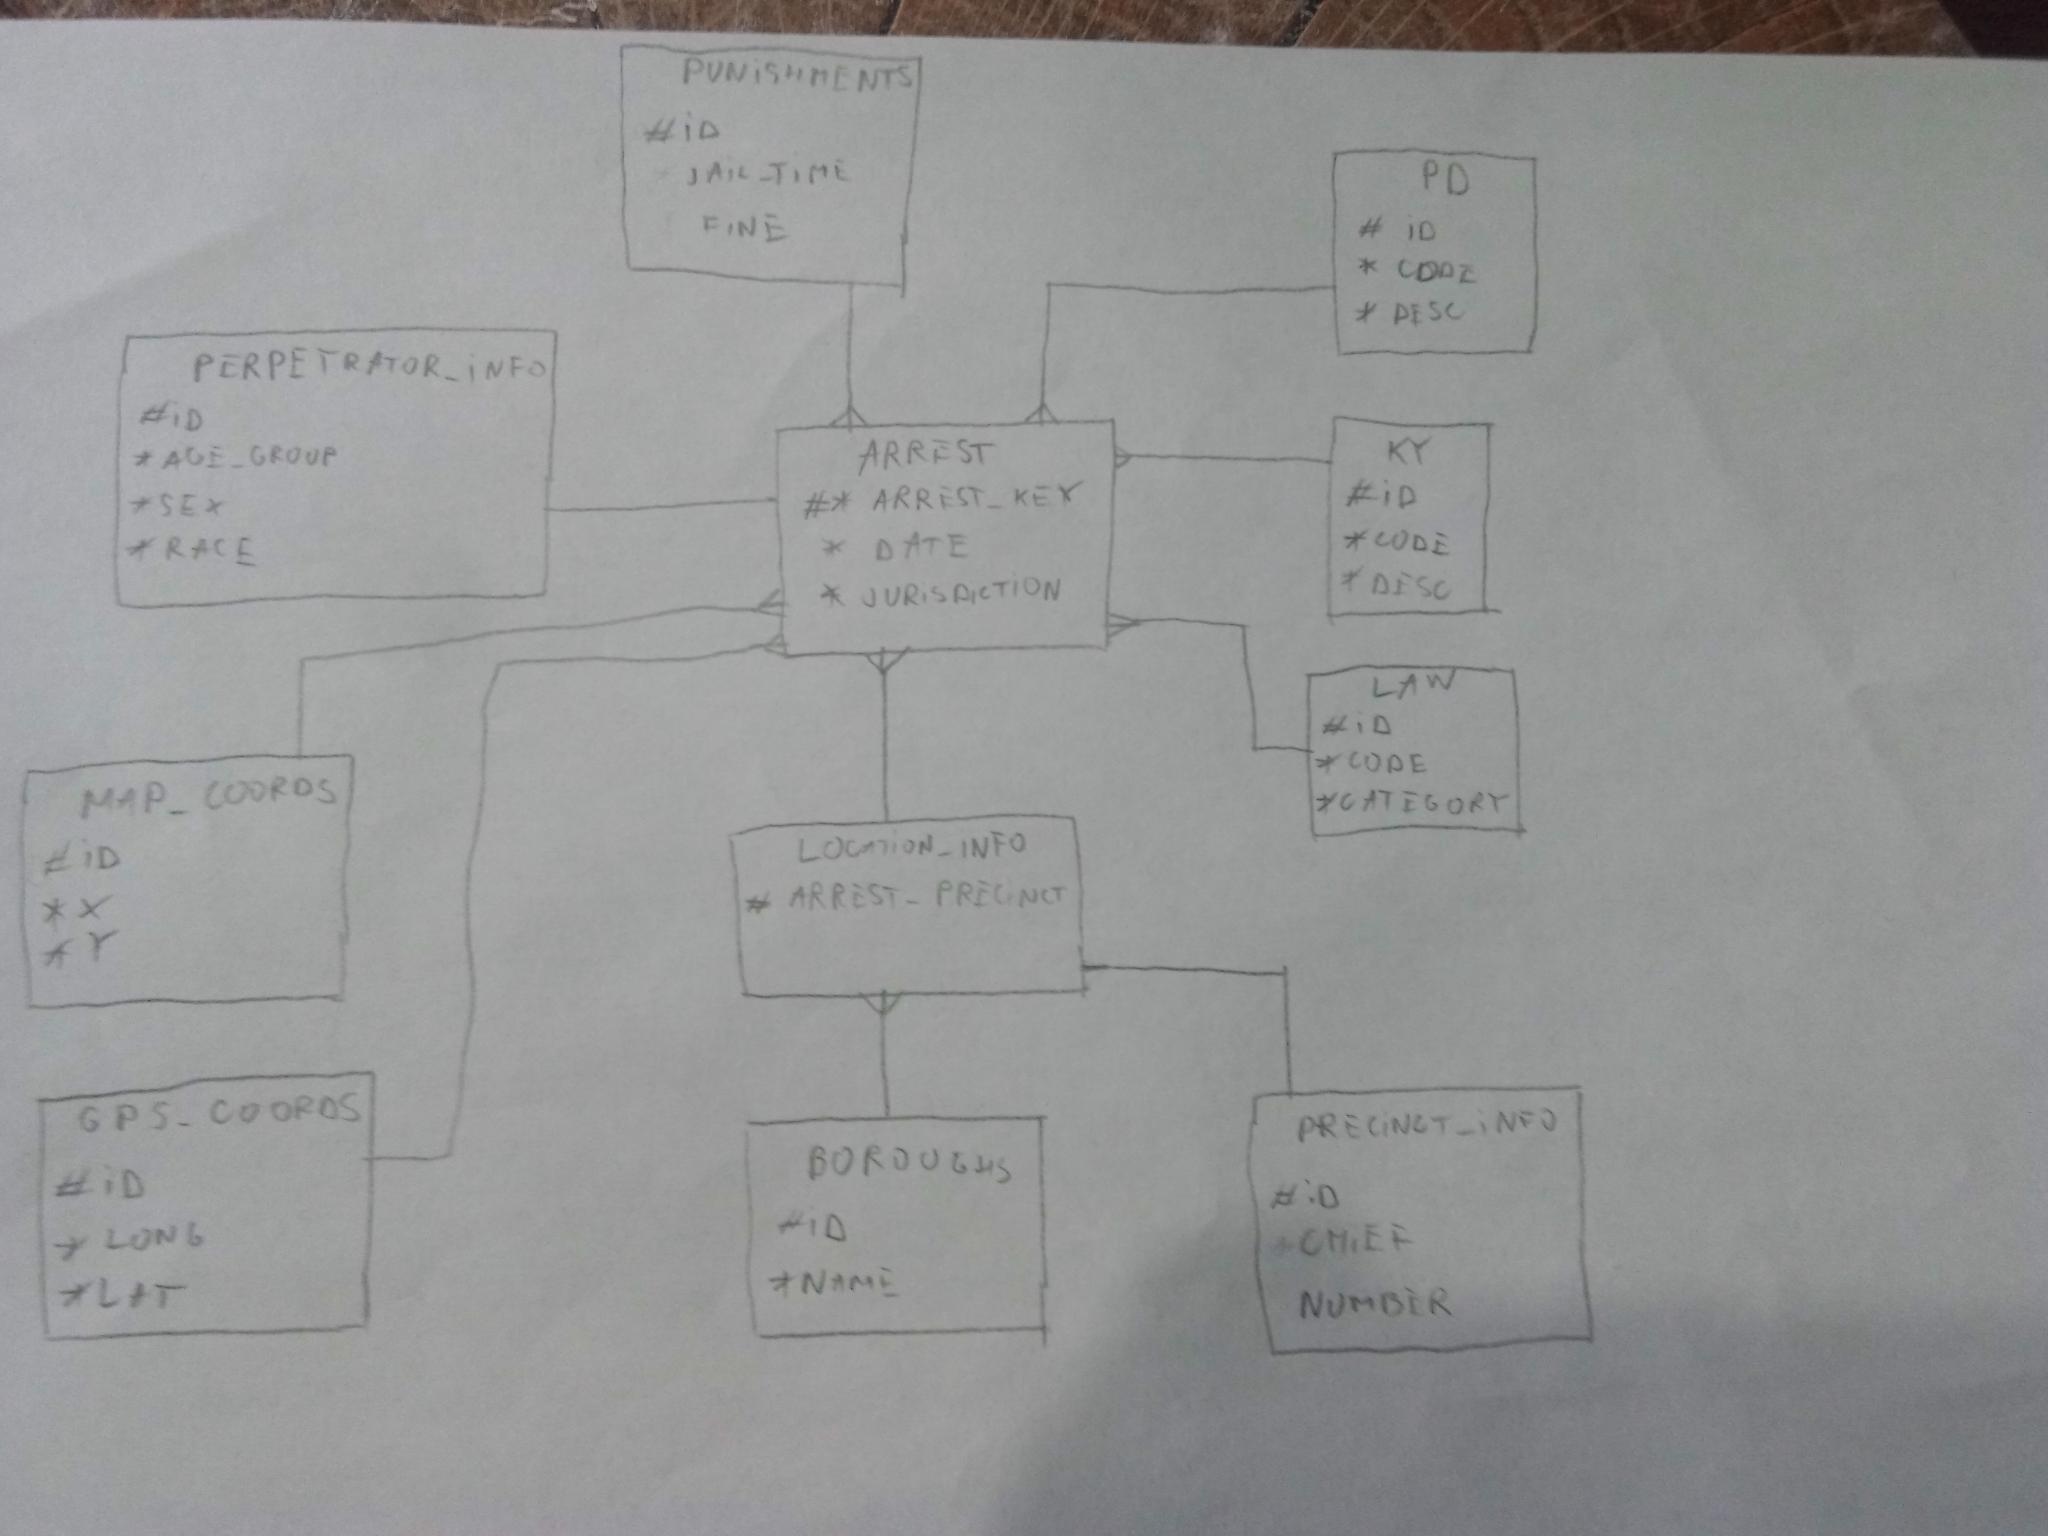 PUNISHMENTS
#iD
JAIL_TiME
FINE
PD
# iD
* CODE
* DESC
PERPETRATOR_iNFO
#iD
*AGE_GROUP
*SEX
*RACE
ARREST
#* ARREST_KEY
* DATE
* JURiSDiCTiON
KY
#iD
*CODE
*DESC
LAW
#iD
*CODE
*CATEGORY
MAP_COORDS
#iD
*X
*Y
LOCATiON_INFO
# ARREST_PRECiNCT
GPS_COORDS
#iD
* LONG
*LAT
BOROUGHS
#iD
*NAME
PRECiNCT_iNFO
#iD
CHiEF
NUMBER